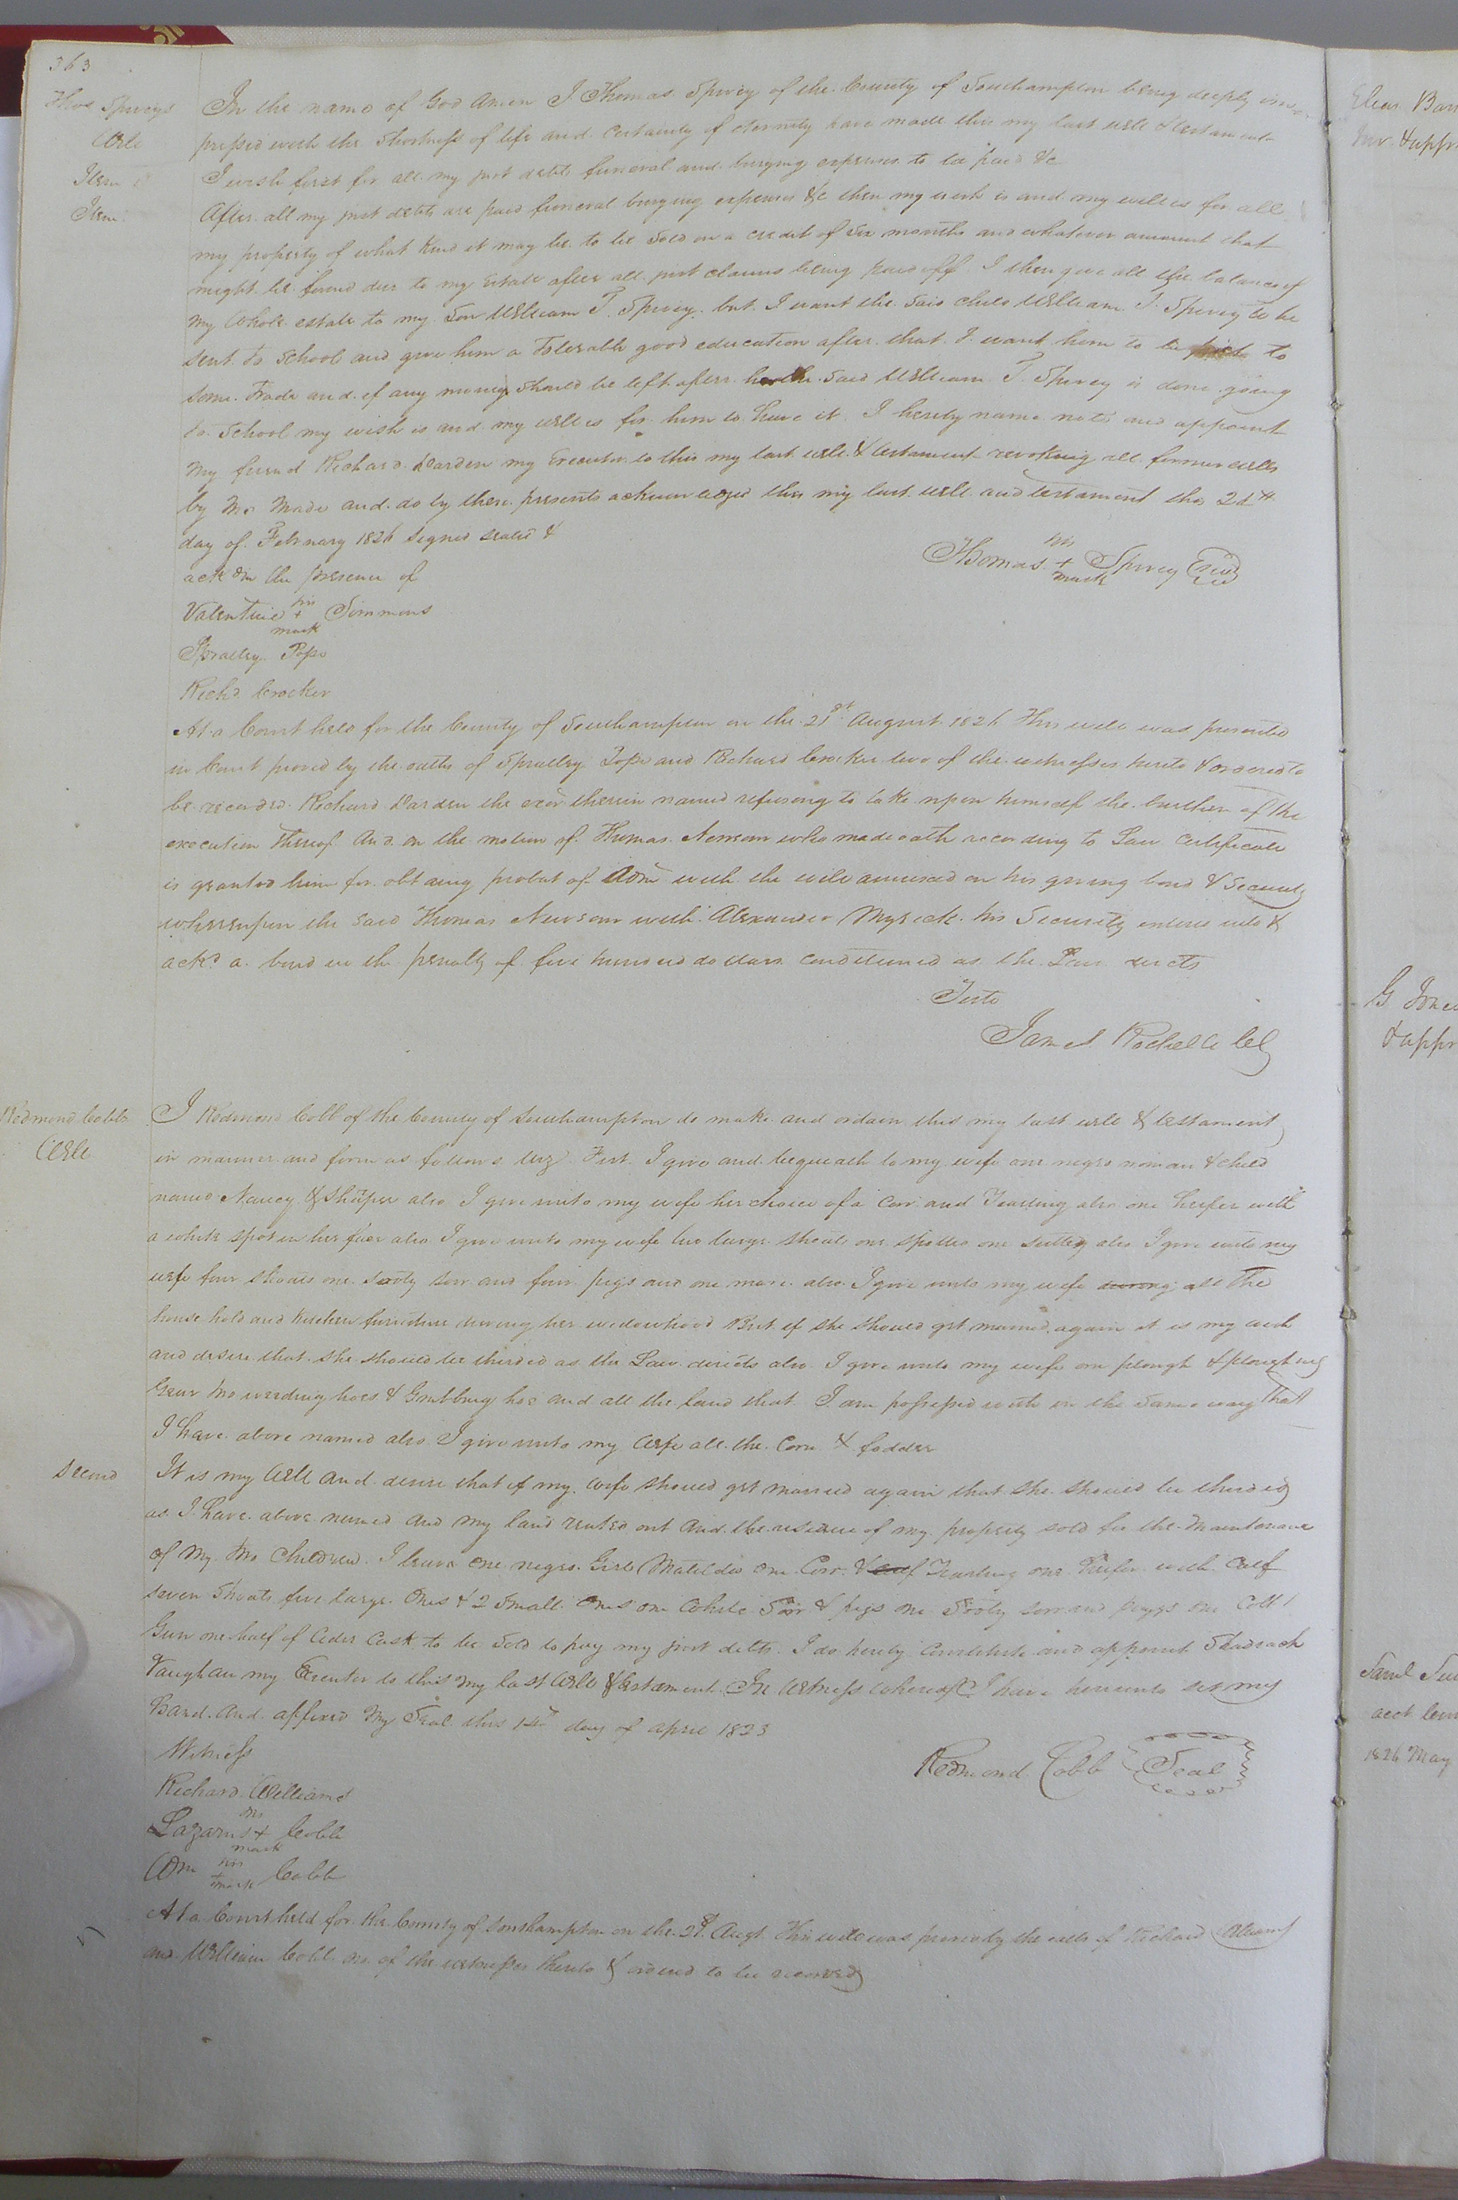 363
Thos Spivey's
Will
In the name of God Amen I Thomas Spivey of the County of Southampton being deeply im
pressed with the Shortness of life and certainty of eternity have made this my last will & testament
Item
I wish first for all my just debts funeral and burying expenses to be paid &c
Item
After all my just debts are paid funeral burying expenses &c then my wish is and my will is for all
my property of what kind it may be to be sold on a credit of six months and whatever amount that
might be found due to my estate after all just claims being paid off I then give all the balance of
my whole estate to my Son William T. Spivey but I want the said child William T. Spivey to be
sent to school and give him a tolerable good education after that I want him to be to
some trade and if any money should be left after the said William T. Spivey is done going
to School my wish is and my will is for him to have it. I hereby name and appoint
my friend Richard Darden my Executor to this my last will & testament revoking all former wills
by me made and do by these presents acknowledge this my last will and testament the
day of February 1826 signed sealed &
ack in the presence of
Thomas his + mark Spivey Seal
Valentine his + mark Simmons
Spratley Pope
Richd Crocker
At a Court held for the County of Southampton on the 21st August 1826 This will was presented
in Court proved by the oaths of Spratley Pope and Richard Crocker two of the witnesses hereto & ordered to
be recorded. Richard Darden the exor therein named refusing to take upon himself the burthen of the
execution thereof And on the motion of Thomas Newsom who made oath according to Law Certificate
is granted him for obtaing probat of Adm with the will annexed on his giving bond & Security
whereupon the said Thomas Newsom with Alexander Myrick his Security entered into &
ackd a bond in the penalty of five hundred dollars conditioned as the Law directs
Teste
James Rochelle Clk
Redmond Cobb's
Will
I Redmond Cobb of the County of Southampton do make and ordain this my last will & testament
in manner and form as follows Viz First I give and bequeath to my wife one negro woman & child
named Nancy & also I give unto my wife her choice of a Cow and Yearling also one heifer with
a white spot in her face also I give unto my wife two large shoats one spotted one also I give unto my
wife four shoats one Sooty sow and four pigs and one mare also I give unto my wife during all the
house hold and kitchen furniture during her widowhood But if she should get married again it is my wish
and desire that she should be thirded as the Law directs also I give unto my wife one plough & ploughing
Gear two weeding hoes & Grubbing hoe and all the land that I am possessed with in the same way that
I have above named also I give unto my wife all the Corn & fodder
Second
It is my Will and desire that if my wife should get married again that she should be thirded
as I have above named and my land rented out and the residue of my property sold for the Maintenance
of my two Children. I leave one negro Girl Matilda one Cow & calf Yearling one heifer with Calf
seven Shoats five large Ones & 2 Small Ones one White Sow & pigs one Sooty sow and piggs one Colt 1
Gun one half of Cider Cask to be Sold to pay my just debts. I do hereby Constitute and appoint Shadrach
Vaughan my Executor to this my last Will & testament In Witness whereof I have hereunto set my
Hand and affixed My Seal this 14th day of april 1823
Witness
Redmond Cobb Seal
Richard Williams
Lazarus his + mark Cobb
Wm his + mark Cobb
At a Court held for the County of Southampton on the 21st Augt This will was proved by the oaths of Richard Williams
and William Cobb two of the witnesses thereto & ordered to be recorded
G. Jones
& appr
acct
1826 May